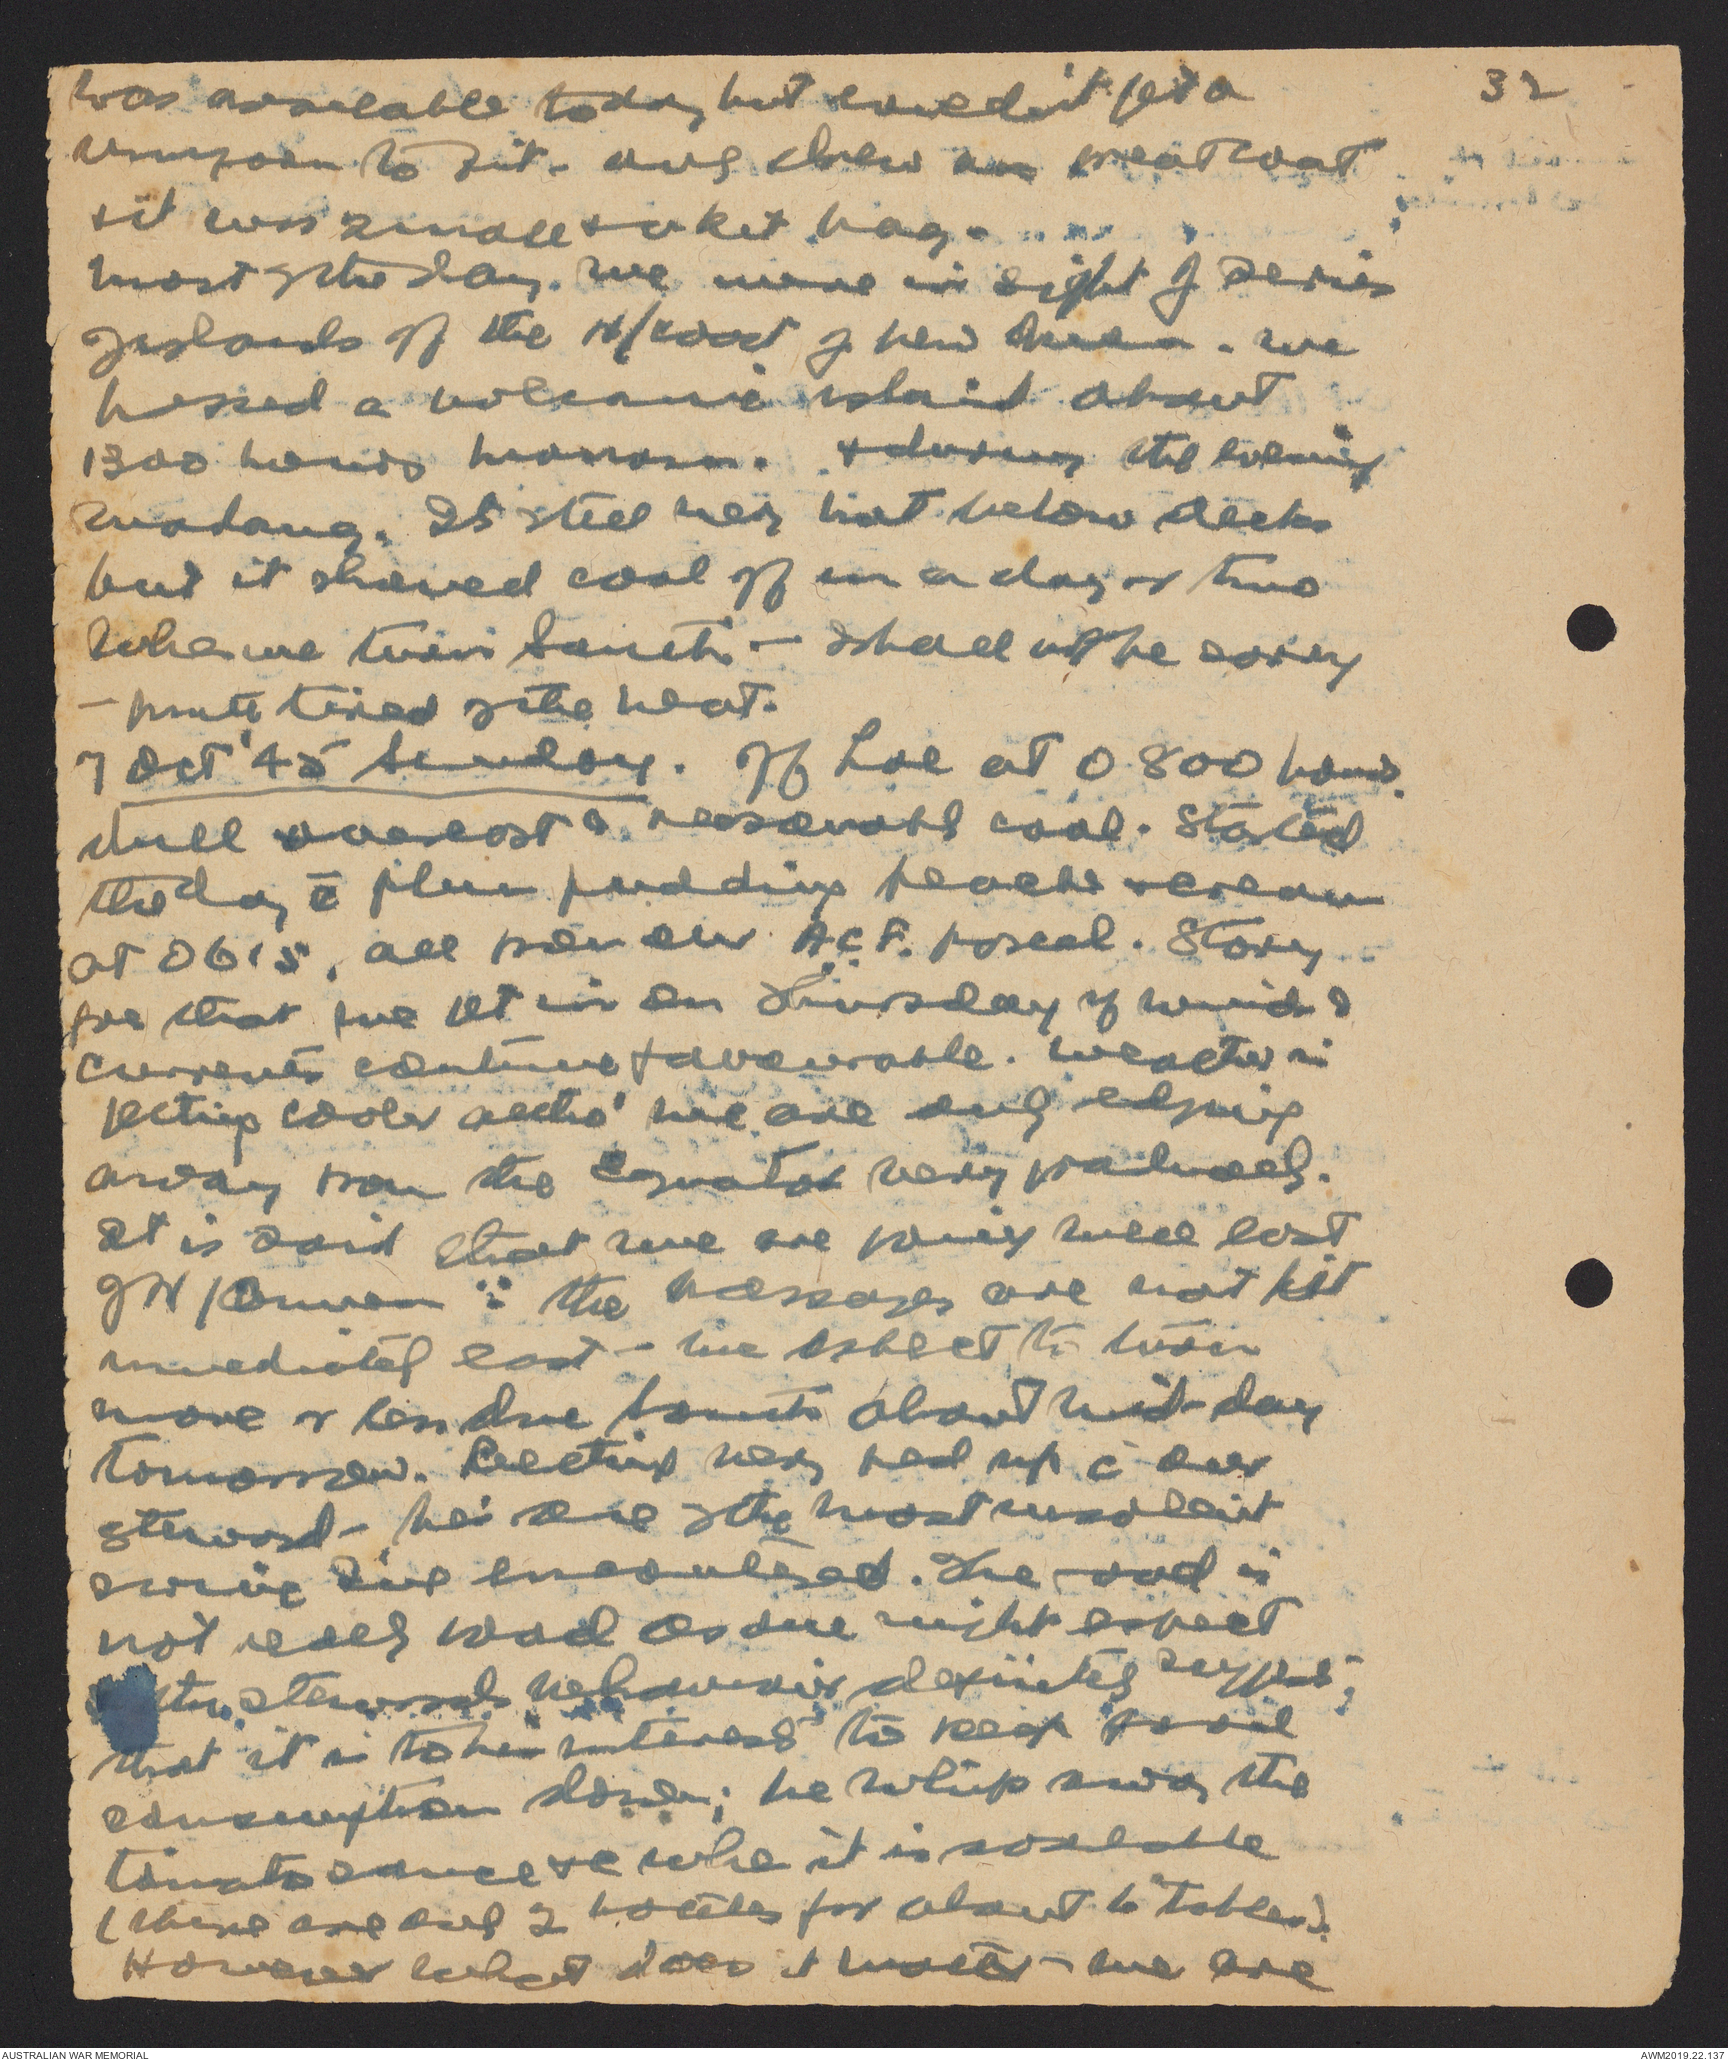 32
was available today but couldn't get a
uniform to fit - only drew a greatcoat
& it was small & a kit bag.
most of the day. We were in sight of series
of islands off the N/coast of New Guinea. We
passed a volcanic island about
1300 hours Manam. & during the evening
Madang. It's still very hot below decks
but it should cool off in a day or two
when we turn South - I shall not be sorry
- pretty tired of the heat.
7 Oct '45 Sunday. Off Lae at 0800 hours.
dull overcast & reasonably cool. Started
the day c̄ plum pudding peaches & cream
at 0615, all from our A.C.F. parcel. Story
goes that we get in on Thursday if winds &
currents continue favourable. Weather is
getting cooler altho' we are only edging
away from the Equator very gradually.
It is said that we are going well east
of N/ ∵ the passages are not
immediately east - we expect to turn
more or less due South about mid-day
tomorrow. Getting very fed up c̄ our
steward - he's one of the most insolent
swine I've encountered. The food is
not really good as one might expect
the stewards behaviour definitely suggests
that it is to his interest to keep food
consumption down; he whips away the
tomato sauce &c when it is available
(there are only 2 bottles for about 6 tables).
However what does it matter - we are
AUSTRALIAN WAR MEMORIAL
AWM2019.22.137